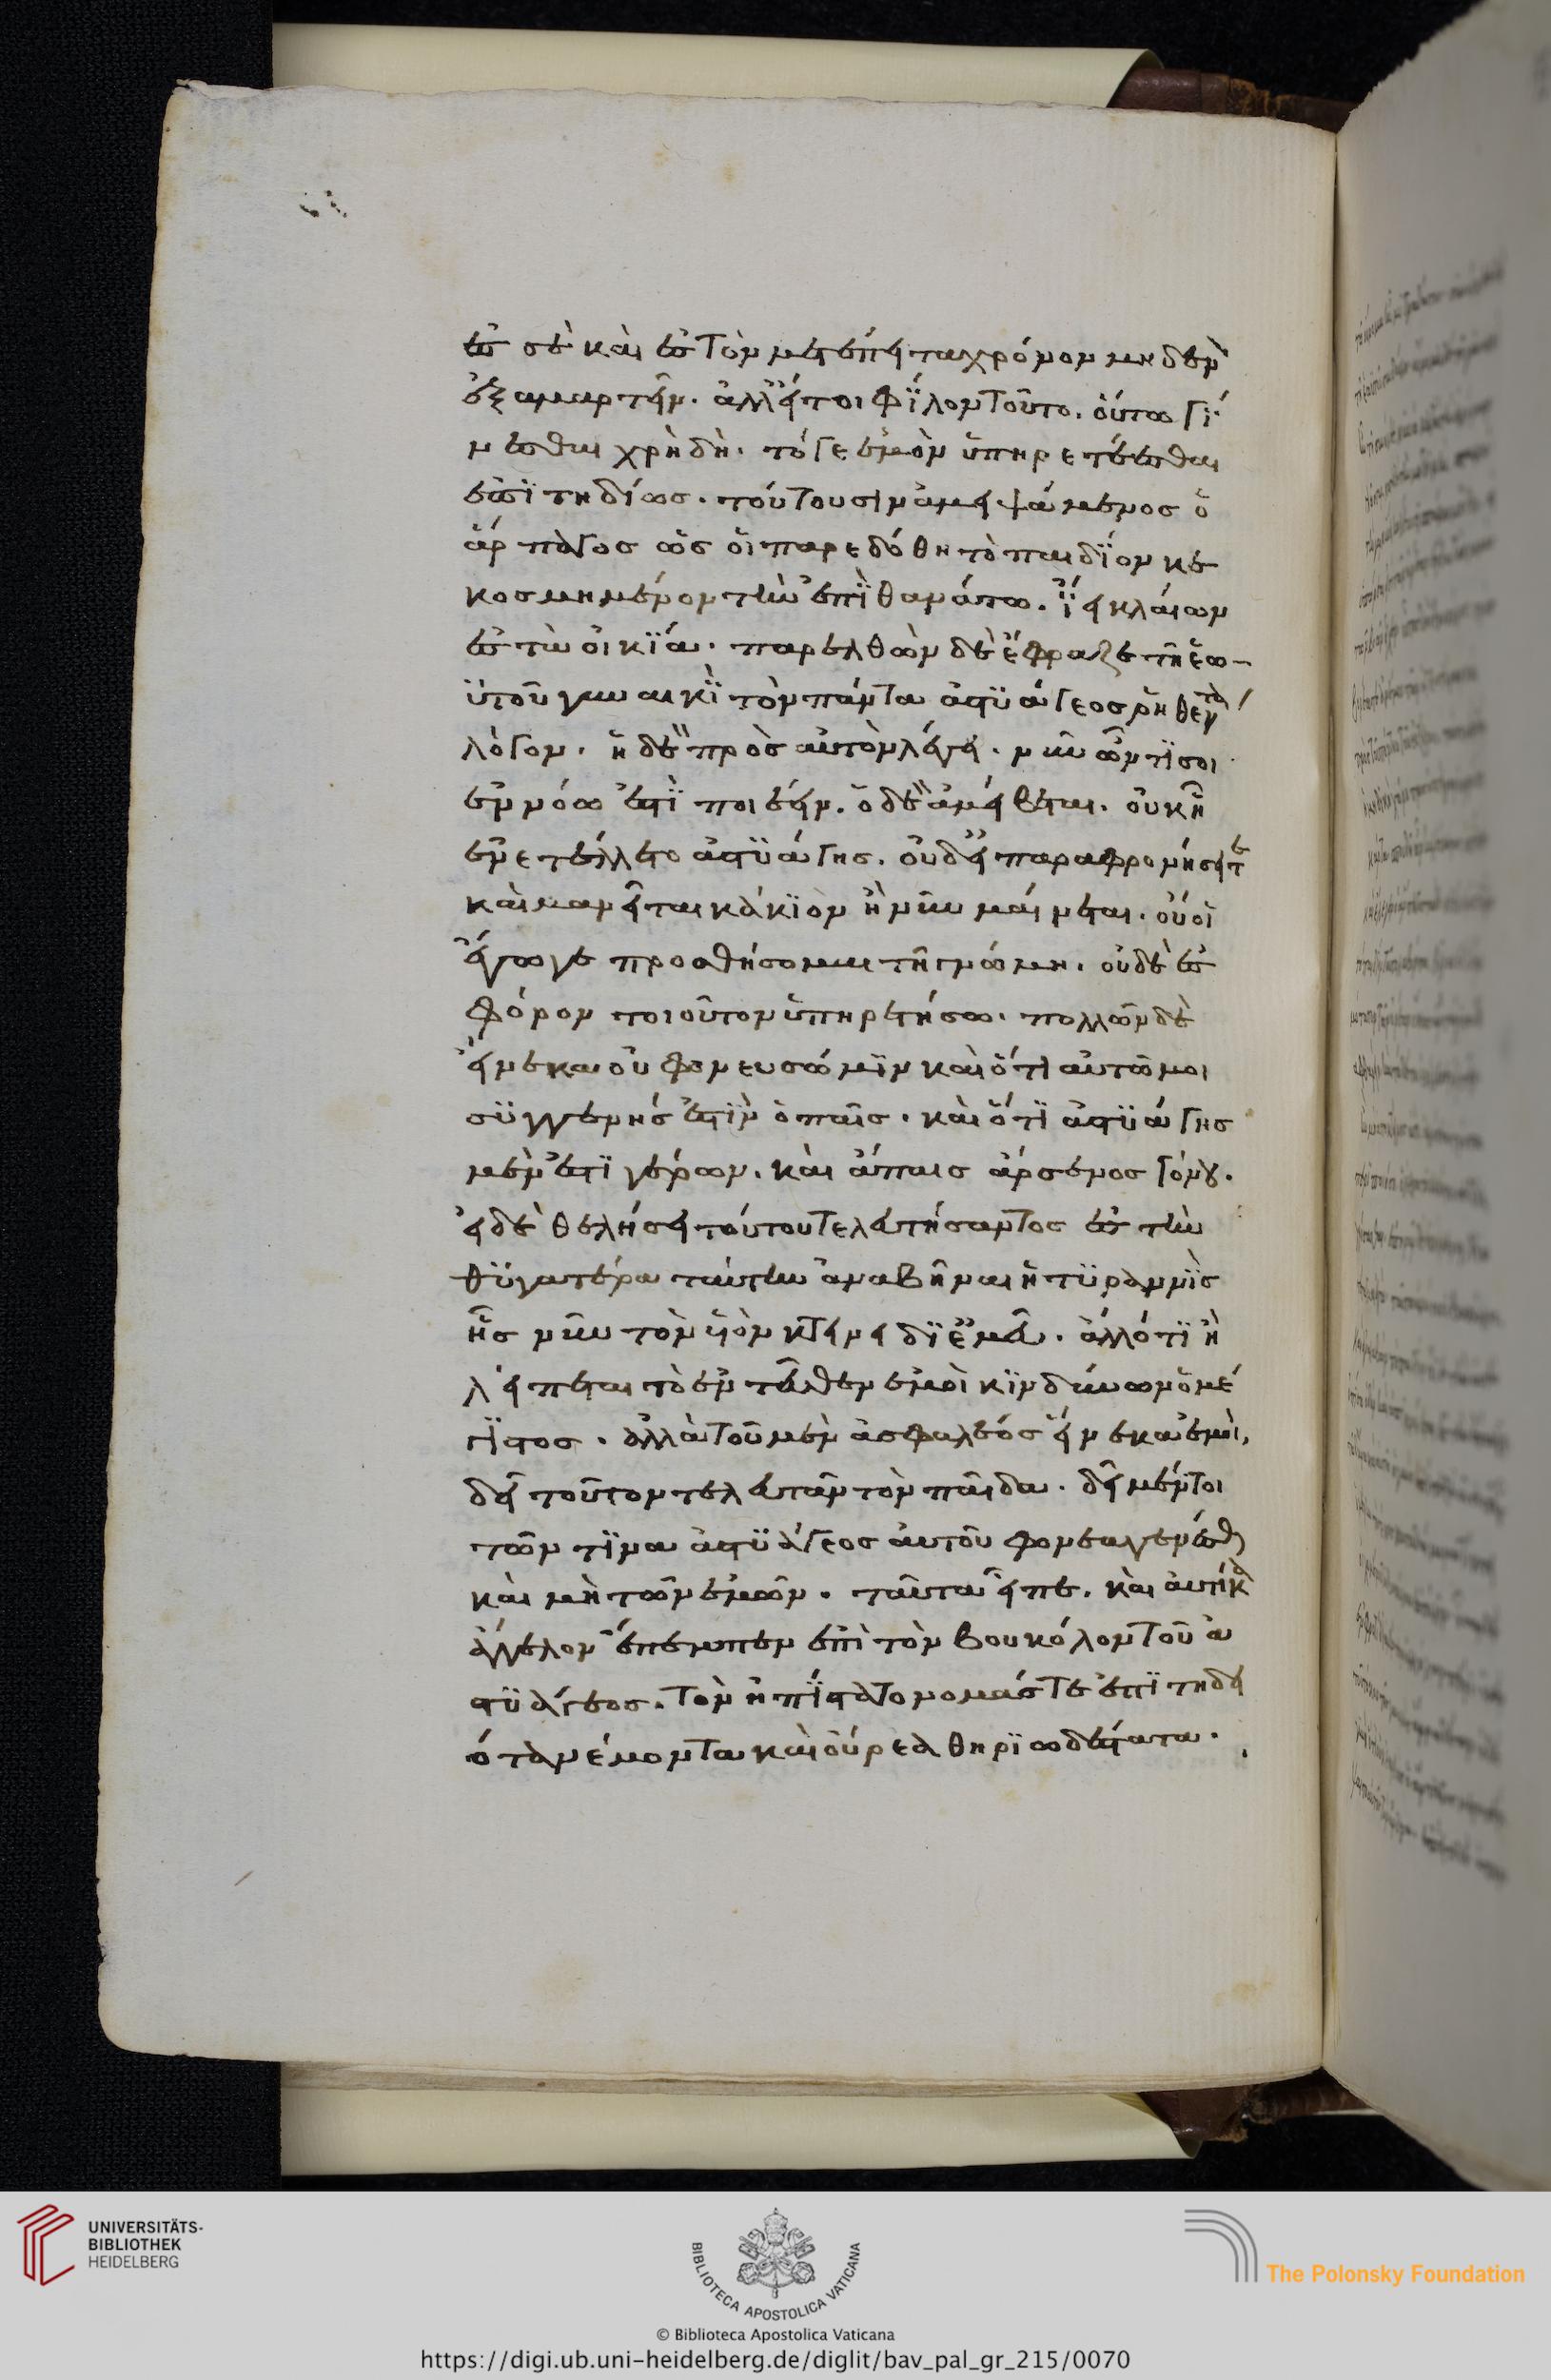 ἐς σὲ καὶ ἐς τὸν μετέπειτα χρόνον μηδὲν
ἐξαμαρτεῖν. ἀλλ' εἴ τοι φίλον τοῦτο. οὕτω γί
νεσθαι χρὴ δὴ. τό γε ἐμὸν ὑπηρετέεσθαι
ἐπιτηδέως. τούτουσιν ἀμειψάμενος ὁ
ἅρπαγος ὥς οἱ παρεδόθη τὸ παιδίον κε
κοσμημένον τὴν ἐπὶ θανάτω. ἤϊε κλαίων
ἐς τὰ οἰκία. παρελθὼν δὲ ἔφραζε τῆ ἑω-
ϋτοῦ γυναικὶ τὸν πάντα ἀστυάγεος ῥηθέντα
λόγον. ἡ δὲ πρὸς αὐτὸν λέγει. νῦν ὦν τί σοι
ἐν νόω ἐστὶ ποιέειν. ὁ δὲ ἀμείβεται. οὐκ ἧ
ἐνετέλλετο ἀστυάγης. οὐδ' εἰ παραφρονήσει τε
καὶ μανεῖται κάκιον ἢ νῦν μαίνεται. οὔ οἱ
ἔγωγε προσθήσομαι τῆ γνώμη. οὐδὲ ἐς
φόνον τοιοῦτον ὑπηρετήσω. πολλῶν δὲ
εἵνεκα οὐ φονευσώ μιν καὶ ὅτι αὐτῶ μοι
συγγενής ἐστιν ὁ παῖς. καὶ ὅτι ἀστυάγης
μέν ἐστι γέρων. καὶ ἄπαις ἄρσενος γόνου.
εἰ δὲ θελήσει τούτου τελευτήσαντος ἐς τὴν
θυγατέρα ταύτην ἀναβῆναι ἡ τυραννὶς
ἧς νῦν τὸν υἱὸν κτείνει δι' ἐμεῦ. ἄλλό τι ἢ
λείπεται τὸ ἐνθεῦθεν ἐμοὶ κινδύνων ὁ μέ
γιστος. ἀλλὰ τοῦ μὲν ἀσφαλέος εἵνεκα ἐμοὶ,
δεῖ τοῦτον τελευτᾶν τὸν παῖδα. δεῖ μέντοι
τῶν τινα ἀστυάγεος αὐτοῦ φονέα γενέσθαι
καὶ μὴ τῶν ἐμῶν. ταῦτα εἶπε. καὶ αὐτίκα
ἄγγελον ἔπεμπεν ἐπὶ τὸν βουκόλον τοῦ ἀ
στυάγεος. τὸν ἠπίστατο νομάς τε ἐπιτηδε
ότα νέμοντα καὶ οὔρεα θηριωδέστατα.
UNIVERSITÄTS-
BIBLIOTHEK
HEIDELBERG
BIBLIOTECA APOSTOLICA VATICANA
The Polonsky Foundation
© Biblioteca Apostolica Vaticana
https://digi.ub.uni-heidelberg.de/diglit/bav_pal_gr_215/0070